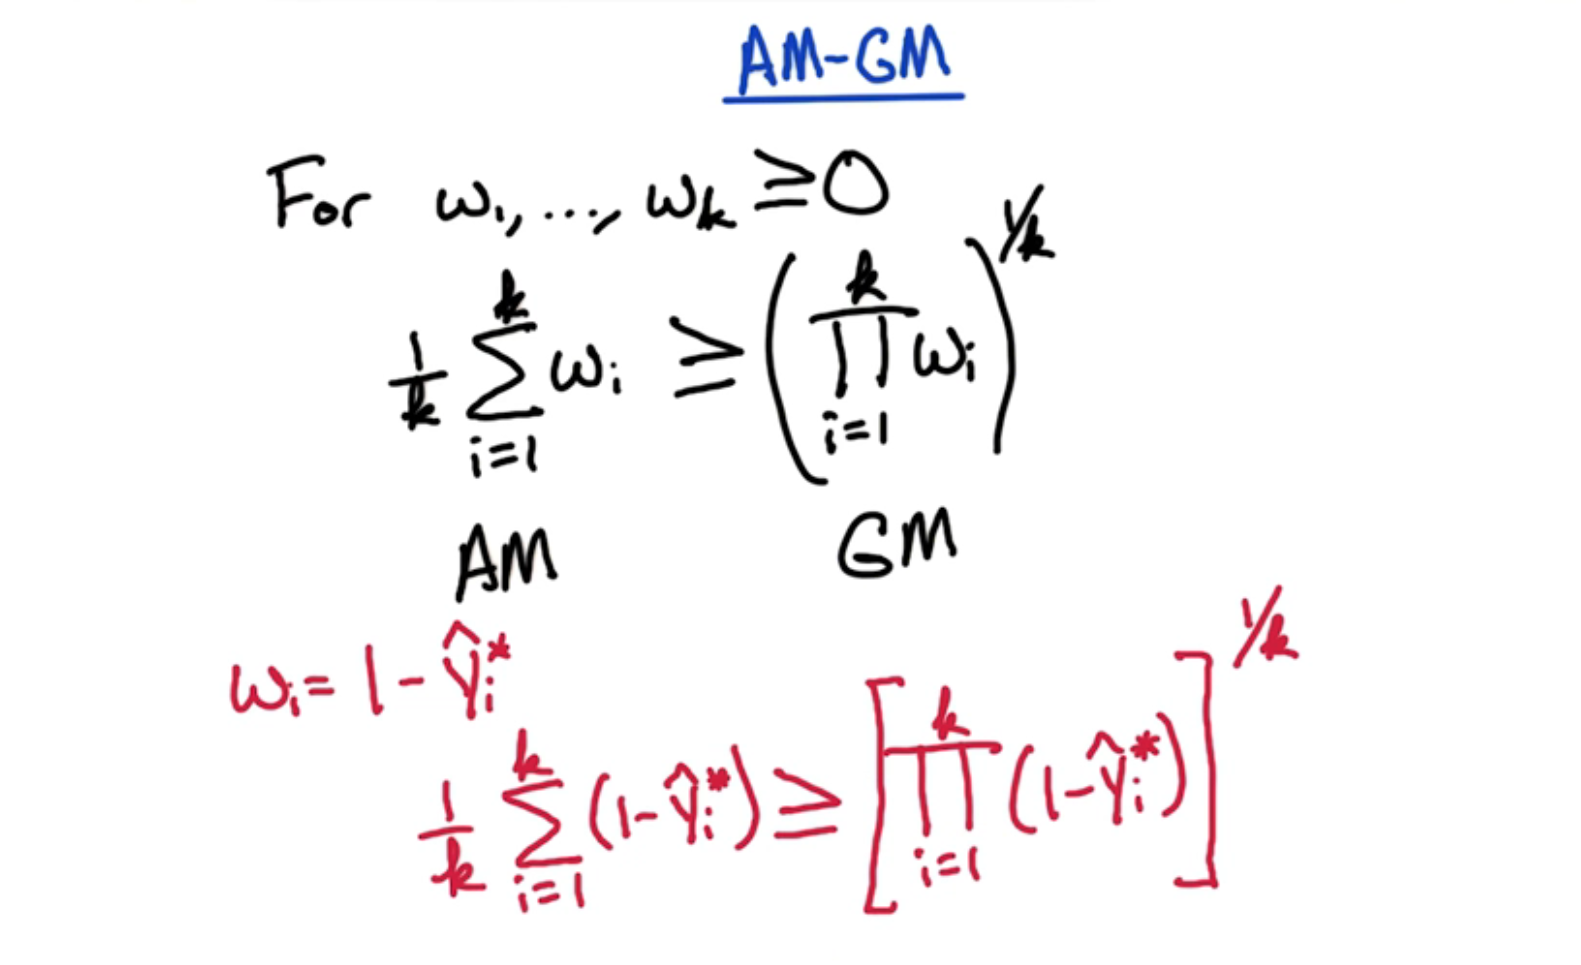 AM-GM
For w₁, ..., wₖ ≥ 0
1/k ∑_{i=1}^{k} wᵢ ≥ (∏_{i=1}^{k} wᵢ)^{1/k}
AM GM
wᵢ = 1 - ŷᵢ*
1/k ∑_{i=1}^{k} (1 - ŷᵢ*) ≥ [∏_{i=1}^{k} (1 - ŷᵢ*)]^{1/k}